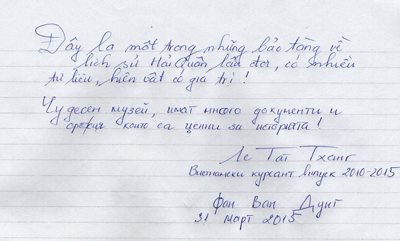 Đây là một trong những bảo tàng về
lịch sử Hải Quân lâu đời, có nhiều
tư liệu, hiện vật có giá trị!
Чудесен музей, имат много документи и
които са ценни за историята!
Ле Тат Тханг
Виетнамски курсант Випуск 2010-2015
Фан Ван Дунг
31 март 2015